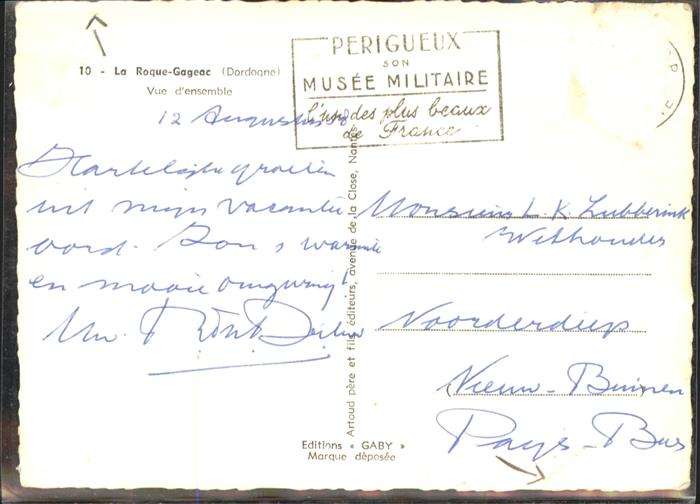 10 - La Roque-Gageac (Dordogne)
Vue d'ensemble
PERIGUEUX
SON
MUSÉE MILITAIRE
l'un des plus beaux
de France
12 Augustus 58
Hartelijke groeten
uit mijn vacantie
oord. Zon, warmte
en mooie omgeving!
Uw
Monsieur L. K. Lubberink
Wethouder
Noorderdiep
Nieuw-Buinen
Pays-Bas
Artaud père et fils, éditeurs, avenue de la Close, Nantes
Editions « GABY »
Marque déposée